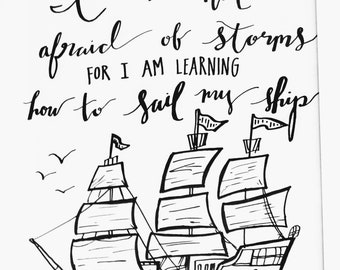 afraid of storms
FOR I AM LEARNING
how to sail my ship